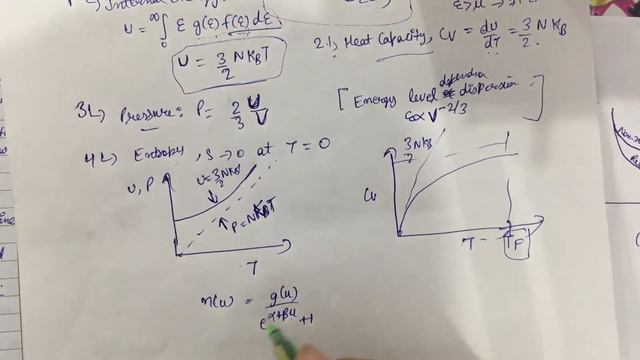 U = ∫₀^∞ ε g(ε) f(ε) dε
U = 3/2 N K_B T
2.↳ Heat Capacity, C_V = dU/dT = 3/2 N K_B.
3↳ Pressure: P = 2/3 U/V
[Energy level dispersion
ε ∝ V^-2/3]
4↳ Entropy, S → 0 at T = 0
U, P
U = 3/2 N K_B
P = N K_B T
T
3/2 N K_B
C_V
T
T_F
n(u) = g(u) / e^(α+βu) + 1